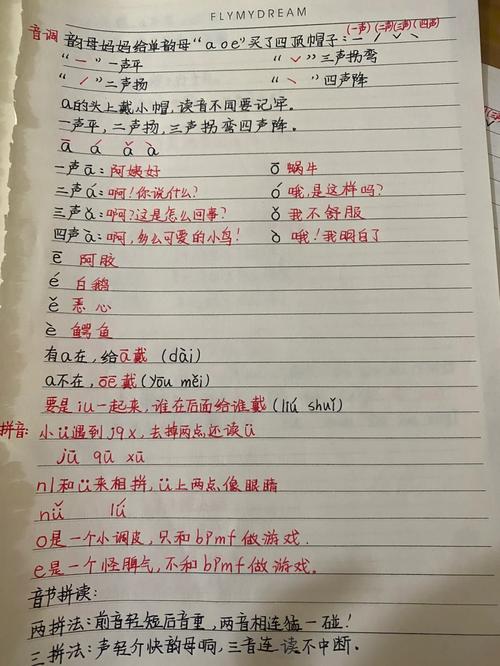 FLYMYDREAM
(一声) (二声) (三声) (四声)
音调 韵母妈妈给单韵母“a o e”买了四顶帽子: ー ˊ ˇ ˋ
“ー”一声平 “ˇ”三声拐弯
“ˊ”二声扬 “ˋ”四声降
a的头上戴小帽,读音不同要记牢.
一声平,二声扬,三声拐弯四声降.
ā á ǎ à
一声ā: 阿姨好 ō 蜗牛
二声á: 啊!你说什么? ó 哦,是这样吗?
三声ǎ: 啊?这是怎么回事? ǒ 我不舒服
四声à: 啊,多么可爱的小鸟! ò 哦!我明白了
ē 阿胶
é 白鹅
ě 恶心
è 鳄鱼
有a在,给ā戴 (dài)
a不在,ōē戴(yōu měi)
要是iu一起来,谁在后面给谁戴(liú shuǐ)
拼音: 小ü遇到jqx,去掉两点还读ü
jū qū xū
nl和ü来相拼,ü上两点像眼睛
nǚ lǘ
o是一个小调皮,只和bpmf做游戏.
e是一个怪脾气,不和bpmf做游戏.
音节拼读:
两拼法:前音轻短后音重,两音相连猛一碰!
三拼法:声轻介快韵母响,三音连读不中断.